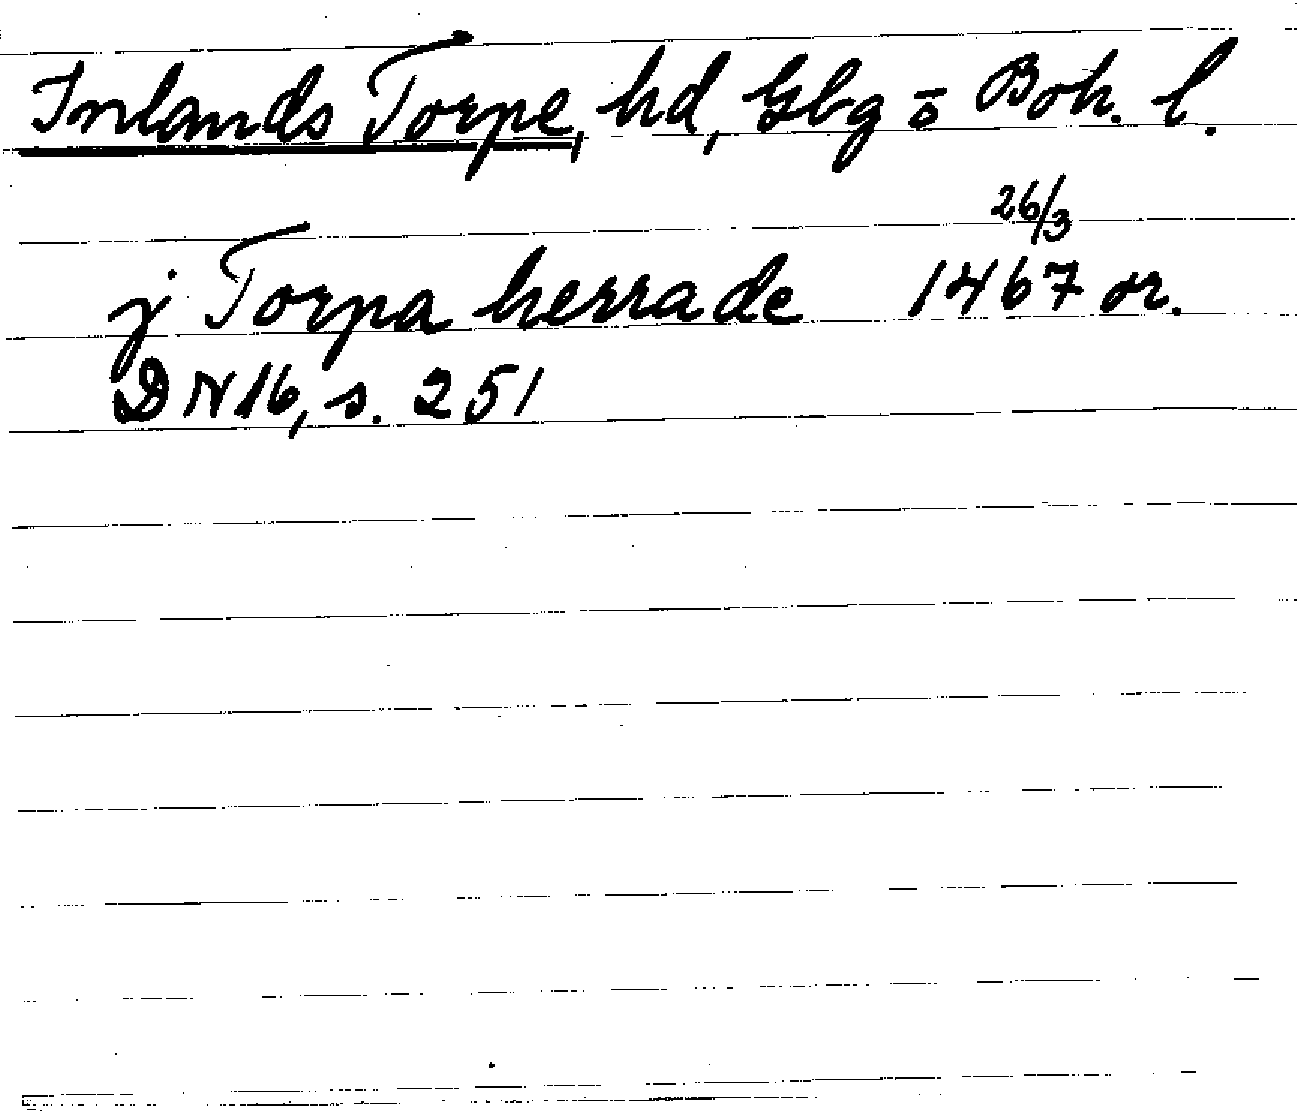 Inlands Torpe, hd, Gbg o Boh. l.
j Torpa herrade 1467 26/3 or.
DN 16, s. 251